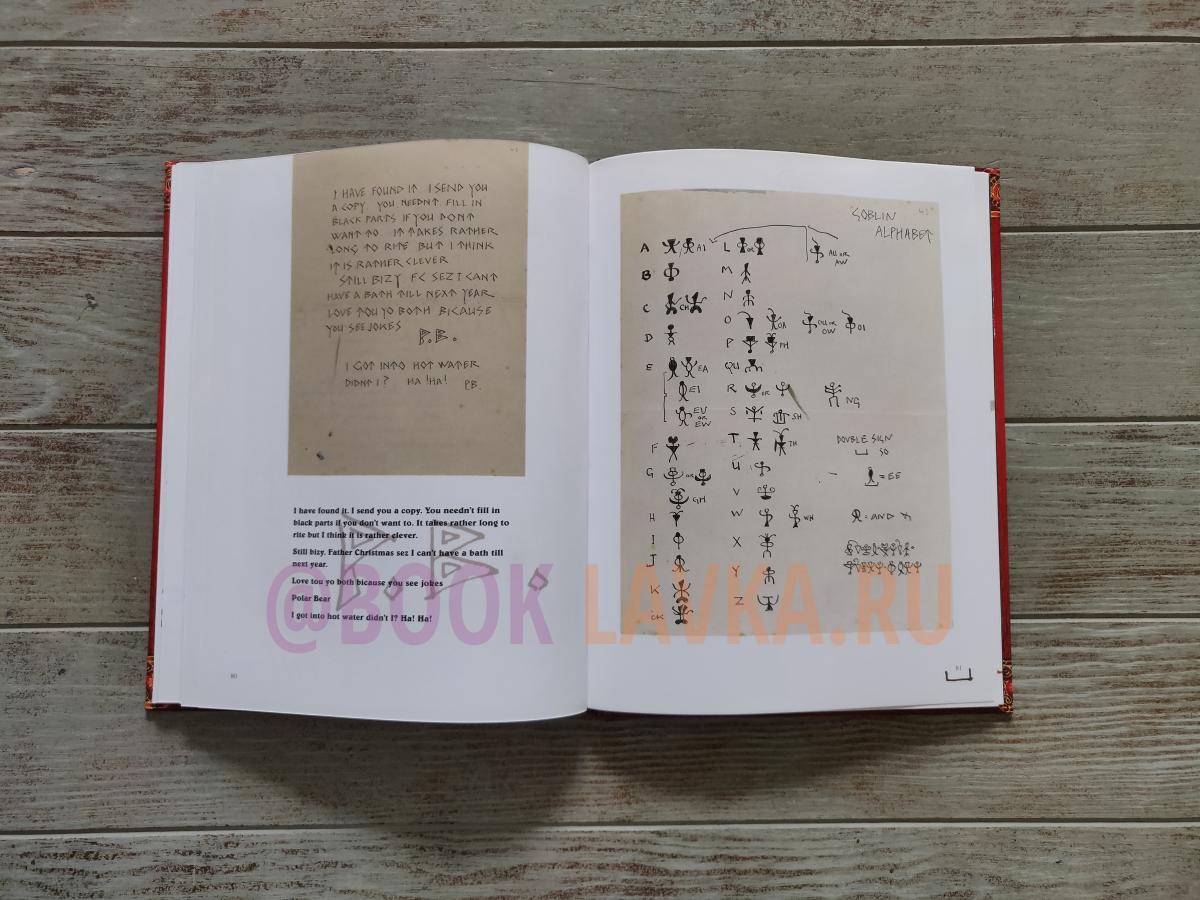 I HAVE FOUND IT I SEND YOU
A COPY. YOU NEEDNT FILL IN
BLACK PARTS IF YOU DONT
WANT TO. IT TAKES RATHER
LONG TO RITE BUT I THINK
IT IS RATHER CLEVER
STILL BIZY FC SEZ I CANT
HAVE A BATH TILL NEXT YEAR
LOVE TOU YO BOTH BICAUSE
YOU SEE JOKES
P.B.
I GOT INTO HOT WATER
DIDNT I? HA!HA! P.B.
I have found it. I send you a copy. You needn't fill in
black parts if you don't want to. It takes rather long to
rite but I think it is rather clever.
Still bizy. Father Christmas sez I can't have a bath till
next year.
Love tou yo both bicause you see jokes
Polar Bear
I got into hot water didn't I? Ha! Ha!
P.B.
80
GOBLIN
ALPHABET
A AI L OR AU OR
AW
B M
C CH N
O OA OU OR
OW OI
D P PH
E EA QU
EI R OR NG
EU
OR
EW S SH
F T TH DOUBLE SIGN
SO
G OR U = EE
GH V
H W WH = AND
I X
J Y
K Z
CK
81
@BOOK LAVKA.RU